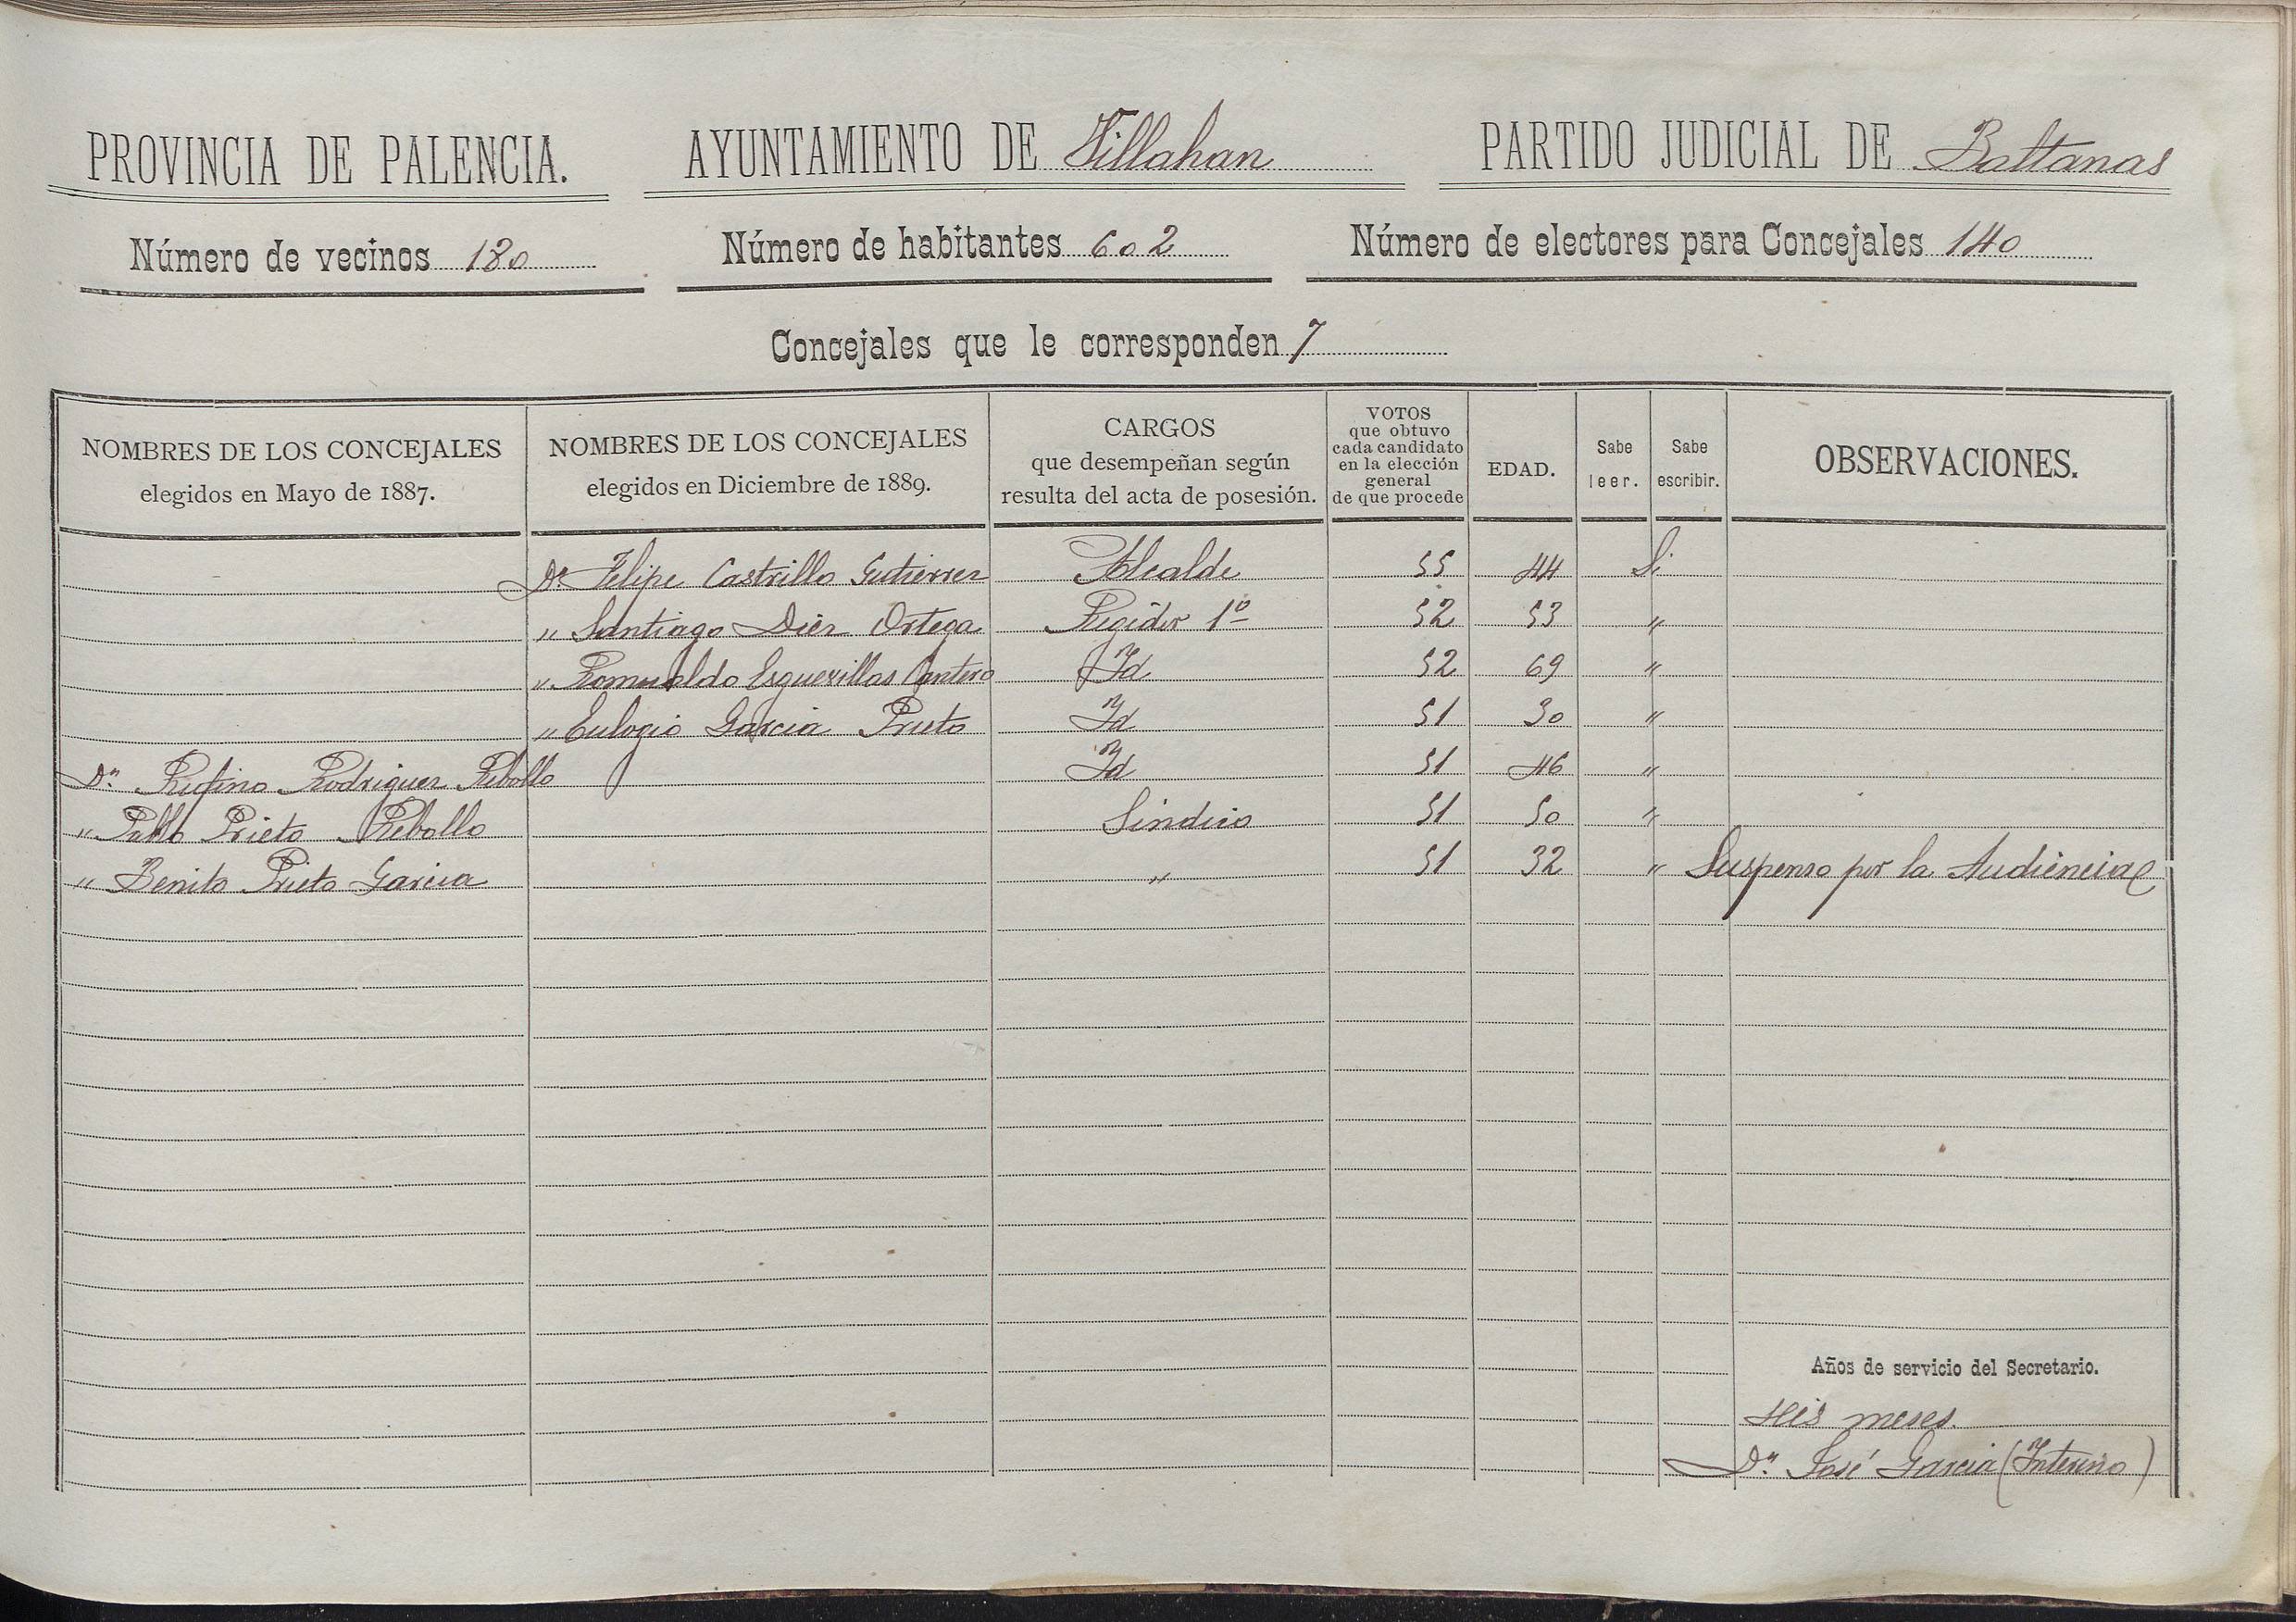 PROVINCIA DE PALENCIA. AYUNTAMIENTO DE Villahan PARTIDO JUDICIAL DE Baltanas
Número de vecinos 180 Número de habitantes 602 Número de electores para Concejales 140
Concejales que le corresponden 7
NOMBRES DE LOS CONCEJALES
elegidos en Mayo de 1887.
NOMBRES DE LOS CONCEJALES
elegidos en Diciembre de 1889.
CARGOS
que desempeñan según
resulta del acta de posesión.
VOTOS
que obtuvo
cada candidato
en la elección
general
de que procede
EDAD.
Sabe
leer.
Sabe
escribir.
OBSERVACIONES.
Dn. Felipe Castrillo Gutierrez Alcalde 55 44 Si
" Santiago Diez Ortega Regidor 1º 52 53 "
" Romualdo Esguevillas Cantero Id 52 69 "
" Eulogio Garcia Prieto Id 51 30 "
Dn. Rufino Rodriguez Rebollo Id 51 46 "
" Pablo Prieto Rebollo Sindico 51 50 "
" Benito Prieto Garcia " 51 32 " Suspenso por la Audiencia
Años de servicio del Secretario.
meses.
Dn. José Garcia (Interino)